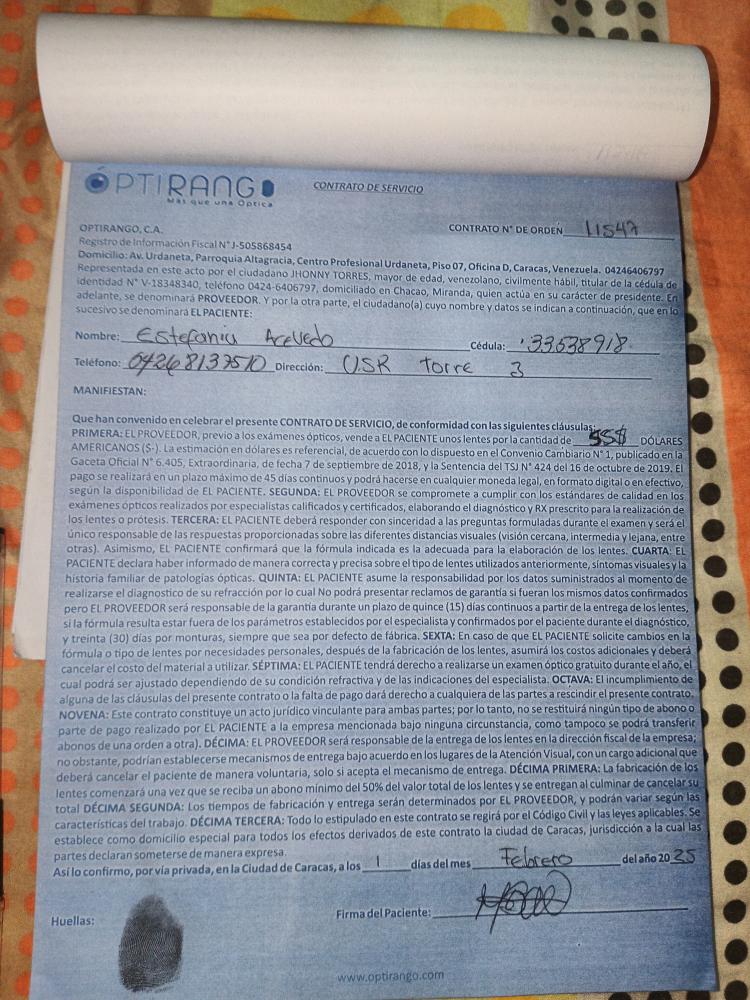 ÓPTIRANGO
Más que una Óptica
CONTRATO DE SERVICIO
OPTIRANGO, C.A.
CONTRATO N° DE ORDEN 11547
Registro de Información Fiscal N° J-505868454
Domicilio: Av. Urdaneta, Parroquia Altagracia, Centro Profesional Urdaneta, Piso 07, Oficina D, Caracas, Venezuela. 04246406797
Representada en este acto por el ciudadano JHONNY TORRES, mayor de edad, venezolano, civilmente hábil, titular de la cédula de
identidad N° V-18348340, teléfono 0424-6406797, domiciliado en Chacao, Miranda, quien actúa en su carácter de presidente. En
adelante, se denominará PROVEEDOR. Y por la otra parte, el ciudadano(a) cuyo nombre y datos se indican a continuación, que en lo
sucesivo se denominará EL PACIENTE:
Nombre: Estefania Acevedo Cédula: 33638918
Teléfono: 04268137510 Dirección: USR Torre 3
MANIFIESTAN:
Que han convenido en celebrar el presente CONTRATO DE SERVICIO, de conformidad con las siguientes cláusulas:
PRIMERA: EL PROVEEDOR, previo a los exámenes ópticos, vende a EL PACIENTE unos lentes por la cantidad de 55$ DÓLARES
AMERICANOS ($-). La estimación en dólares es referencial, de acuerdo con lo dispuesto en el Convenio Cambiario N° 1, publicado en la
Gaceta Oficial N° 6.405, Extraordinaria, de fecha 7 de septiembre de 2018, y la Sentencia del TSJ N° 424 del 16 de octubre de 2019. El
pago se realizará en un plazo máximo de 45 días continuos y podrá hacerse en cualquier moneda legal, en formato digital o en efectivo,
según la disponibilidad de EL PACIENTE. SEGUNDA: EL PROVEEDOR se compromete a cumplir con los estándares de calidad en los
exámenes ópticos realizados por especialistas calificados y certificados, elaborando el diagnóstico y RX prescrito para la realización de
los lentes o prótesis. TERCERA: EL PACIENTE deberá responder con sinceridad a las preguntas formuladas durante el examen y será el
único responsable de las respuestas proporcionadas sobre las diferentes distancias visuales (visión cercana, intermedia y lejana, entre
otras). Asimismo, EL PACIENTE confirmará que la fórmula indicada es la adecuada para la elaboración de los lentes. CUARTA: EL
PACIENTE declara haber informado de manera correcta y precisa sobre el tipo de lentes utilizados anteriormente, síntomas visuales y la
historia familiar de patologías ópticas. QUINTA: EL PACIENTE asume la responsabilidad por los datos suministrados al momento de
realizarse el diagnostico de su refracción por lo cual No podrá presentar reclamos de garantía si fueran los mismos datos confirmados
pero EL PROVEEDOR será responsable de la garantía durante un plazo de quince (15) días continuos a partir de la entrega de los lentes,
si la fórmula resulta estar fuera de los parámetros establecidos por el especialista y confirmados por el paciente durante el diagnóstico,
y treinta (30) días por monturas, siempre que sea por defecto de fábrica. SEXTA: En caso de que EL PACIENTE solicite cambios en la
fórmula o tipo de lentes por necesidades personales, después de la fabricación de los lentes, asumirá los costos adicionales y deberá
cancelar el costo del material a utilizar. SÉPTIMA: EL PACIENTE tendrá derecho a realizarse un examen óptico gratuito durante el año, el
cual podrá ser ajustado dependiendo de su condición refractiva y de las indicaciones del especialista. OCTAVA: El incumplimiento de
alguna de las cláusulas del presente contrato o la falta de pago dará derecho a cualquiera de las partes a rescindir el presente contrato.
NOVENA: Este contrato constituye un acto jurídico vinculante para ambas partes; por lo tanto, no se restituirá ningún tipo de abono o
parte de pago realizado por EL PACIENTE a la empresa mencionada bajo ninguna circunstancia, como tampoco se podrá transferir
abonos de una orden a otra). DÉCIMA: EL PROVEEDOR será responsable de la entrega de los lentes en la dirección fiscal de la empresa;
no obstante, podrían establecerse mecanismos de entrega bajo acuerdo en los lugares de la Atención Visual, con un cargo adicional que
deberá cancelar el paciente de manera voluntaria, solo si acepta el mecanismo de entrega. DÉCIMA PRIMERA: La fabricación de los
lentes comenzará una vez que se reciba un abono mínimo del 50% del valor total de los lentes y se entregan al culminar de cancelar su
total DÉCIMA SEGUNDA: Los tiempos de fabricación y entrega serán determinados por EL PROVEEDOR, y podrán variar según las
características del trabajo. DÉCIMA TERCERA: Todo lo estipulado en este contrato se regirá por el Código Civil y las leyes aplicables. Se
establece como domicilio especial para todos los efectos derivados de este contrato la ciudad de Caracas, jurisdicción a la cual las
partes declaran someterse de manera expresa.
Así lo confirmo, por vía privada, en la Ciudad de Caracas, a los 1 días del mes Febrero del año 2025
Huellas:
Firma del Paciente:
www.optirango.com